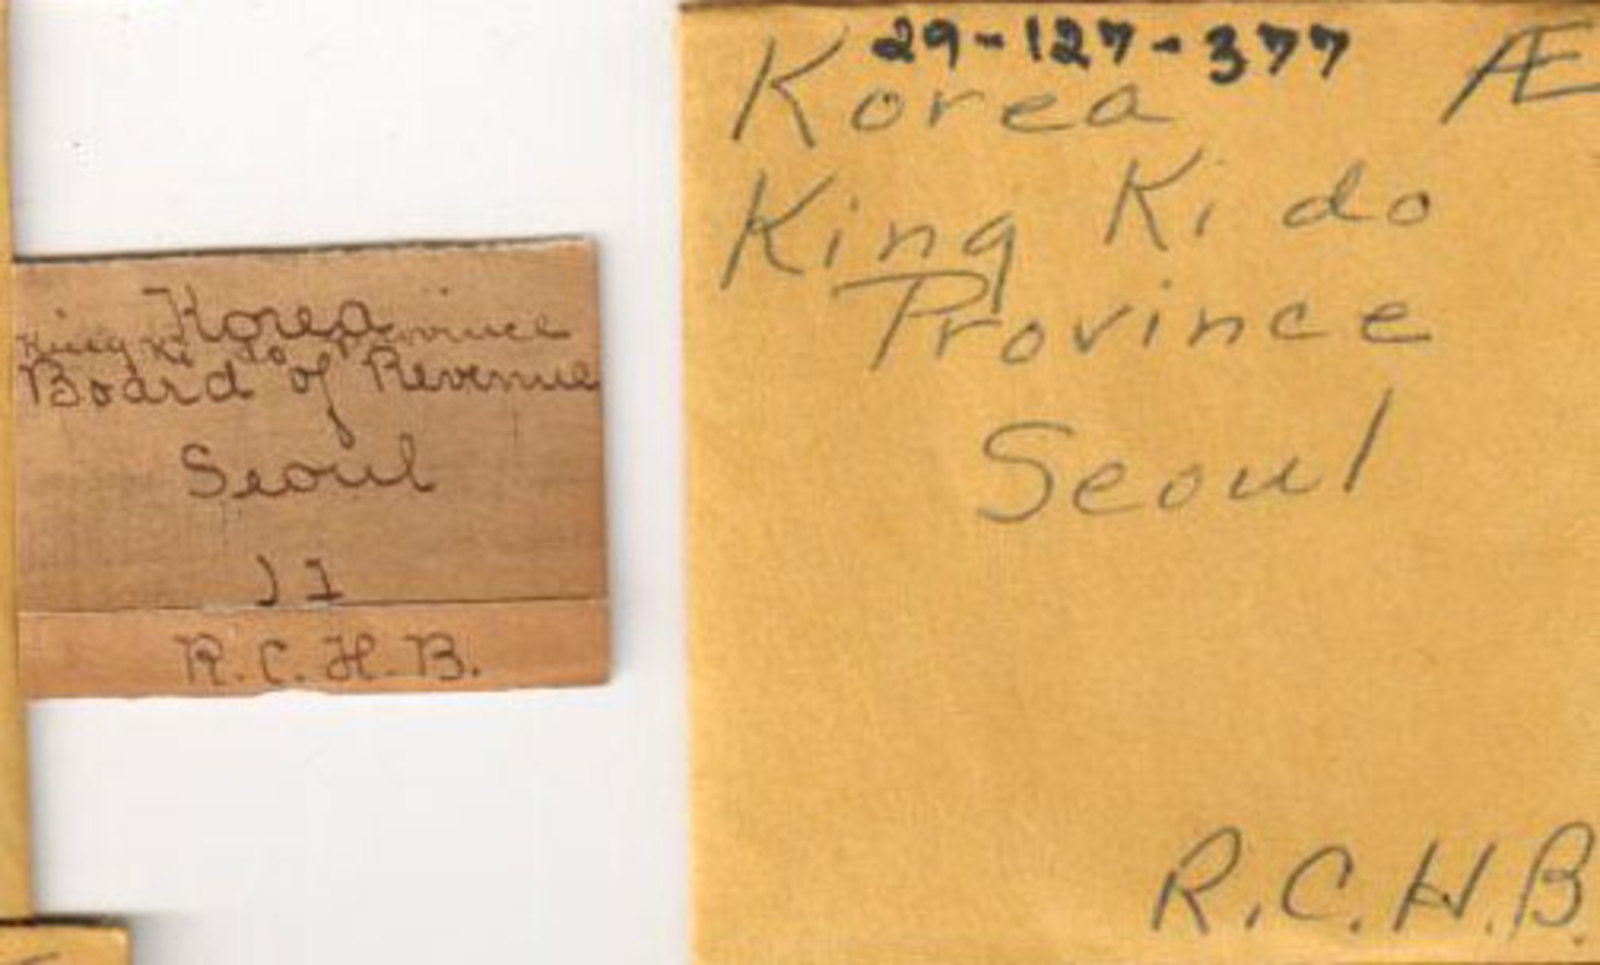 Korea
King Ki do Province
Board of Revenue
Seoul
R.C.H.B.
29-127-377
Korea Æ
King Ki do
Province
Seoul
R.C.H.B.